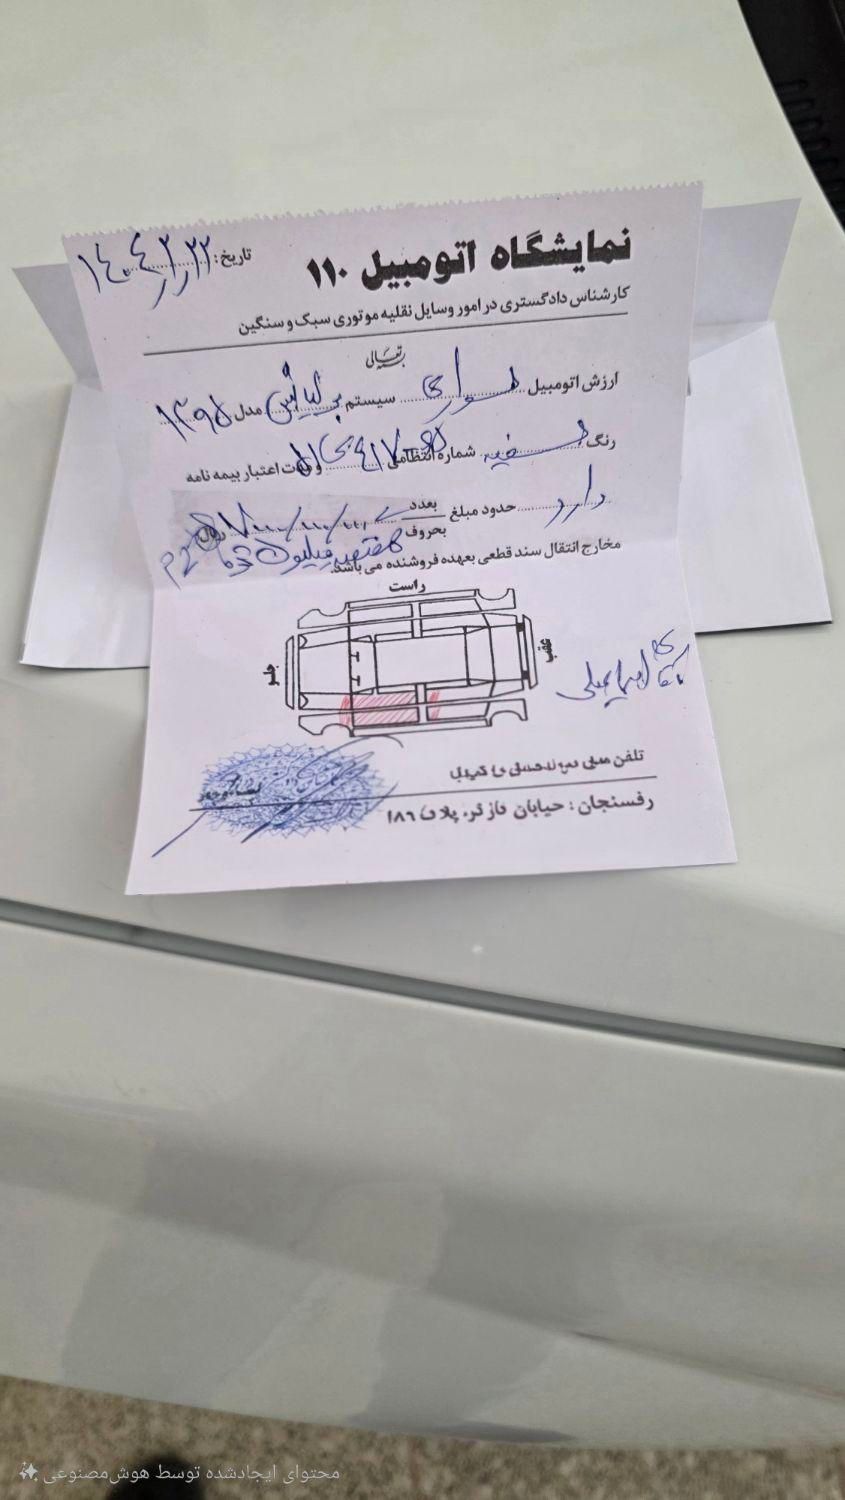 نمایشگاه اتومبیل ۱۱۰
تاریخ: ۱۴۰۴/۲/۲۲
کارشناس دادگستری در امور وسایل نقلیه موتوری سبک و سنگین
بسمه تعالی
ارزش اتومبیل سواری سیستم برلیانس مدل ۱۳۹۵
رنگ سفید شماره انتظامی و مدت اعتبار بیمه نامه
دارد حدود مبلغ بعدد ریال
بحروف هفتصد میلیون
مخارج انتقال سند قطعی بعهده فروشنده می باشد.
راست
جلو
عقب
رفسنجان: خیابان پلاک ۱۸۶
محتوای ایجادشده توسط هوش‌مصنوعی